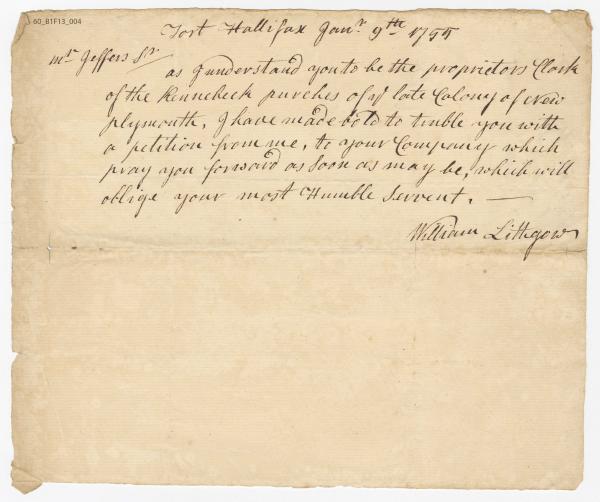 60_B1F13_004
Fort Hallifax Janr. 9th 1755
Mr. Jeffers Sr.
as I understand you to be the proprietors Clark
of the Kennebeck purches of ye late Colony of New
plymouth, I have made bold to truble you with
a petition from me, to your Company which
pray you forward as soon as may be, which will
oblige your most Humble Servent. —
William Lithgow